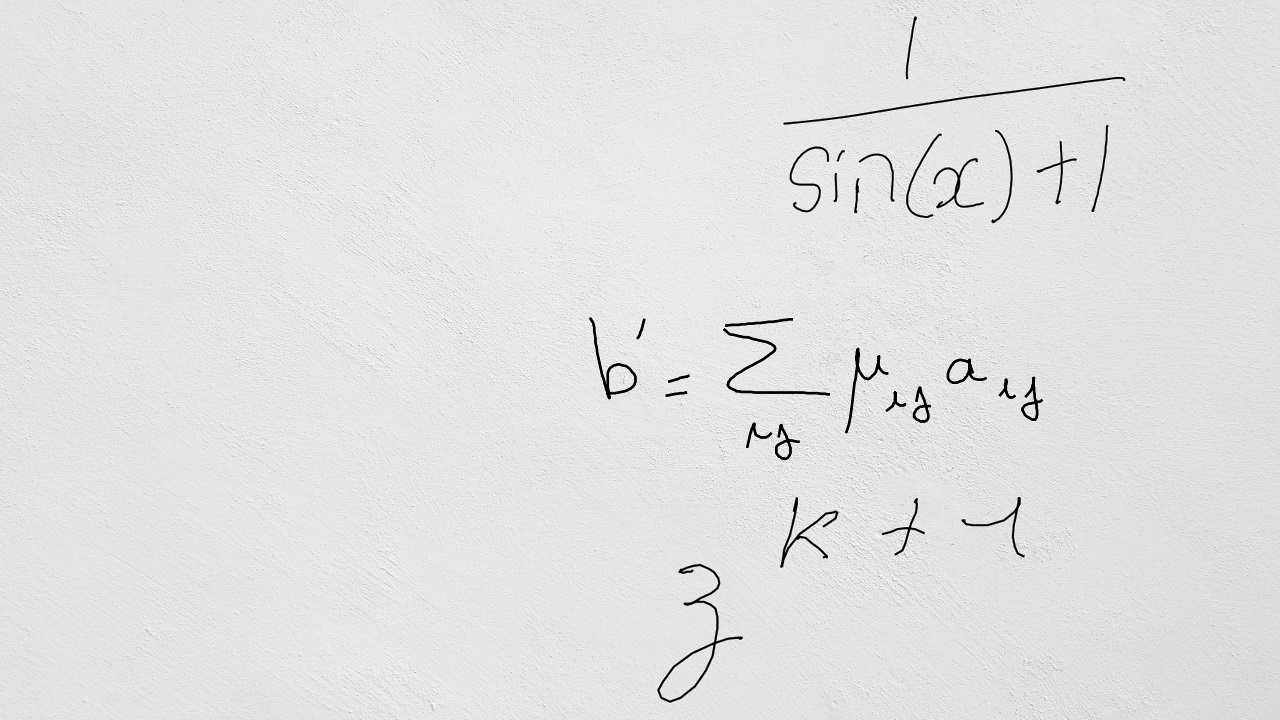 \frac{1}{\sin(x)+1}
b' = \sum_{ij} \mu_{ij} a_{ij}
z^{k+1}